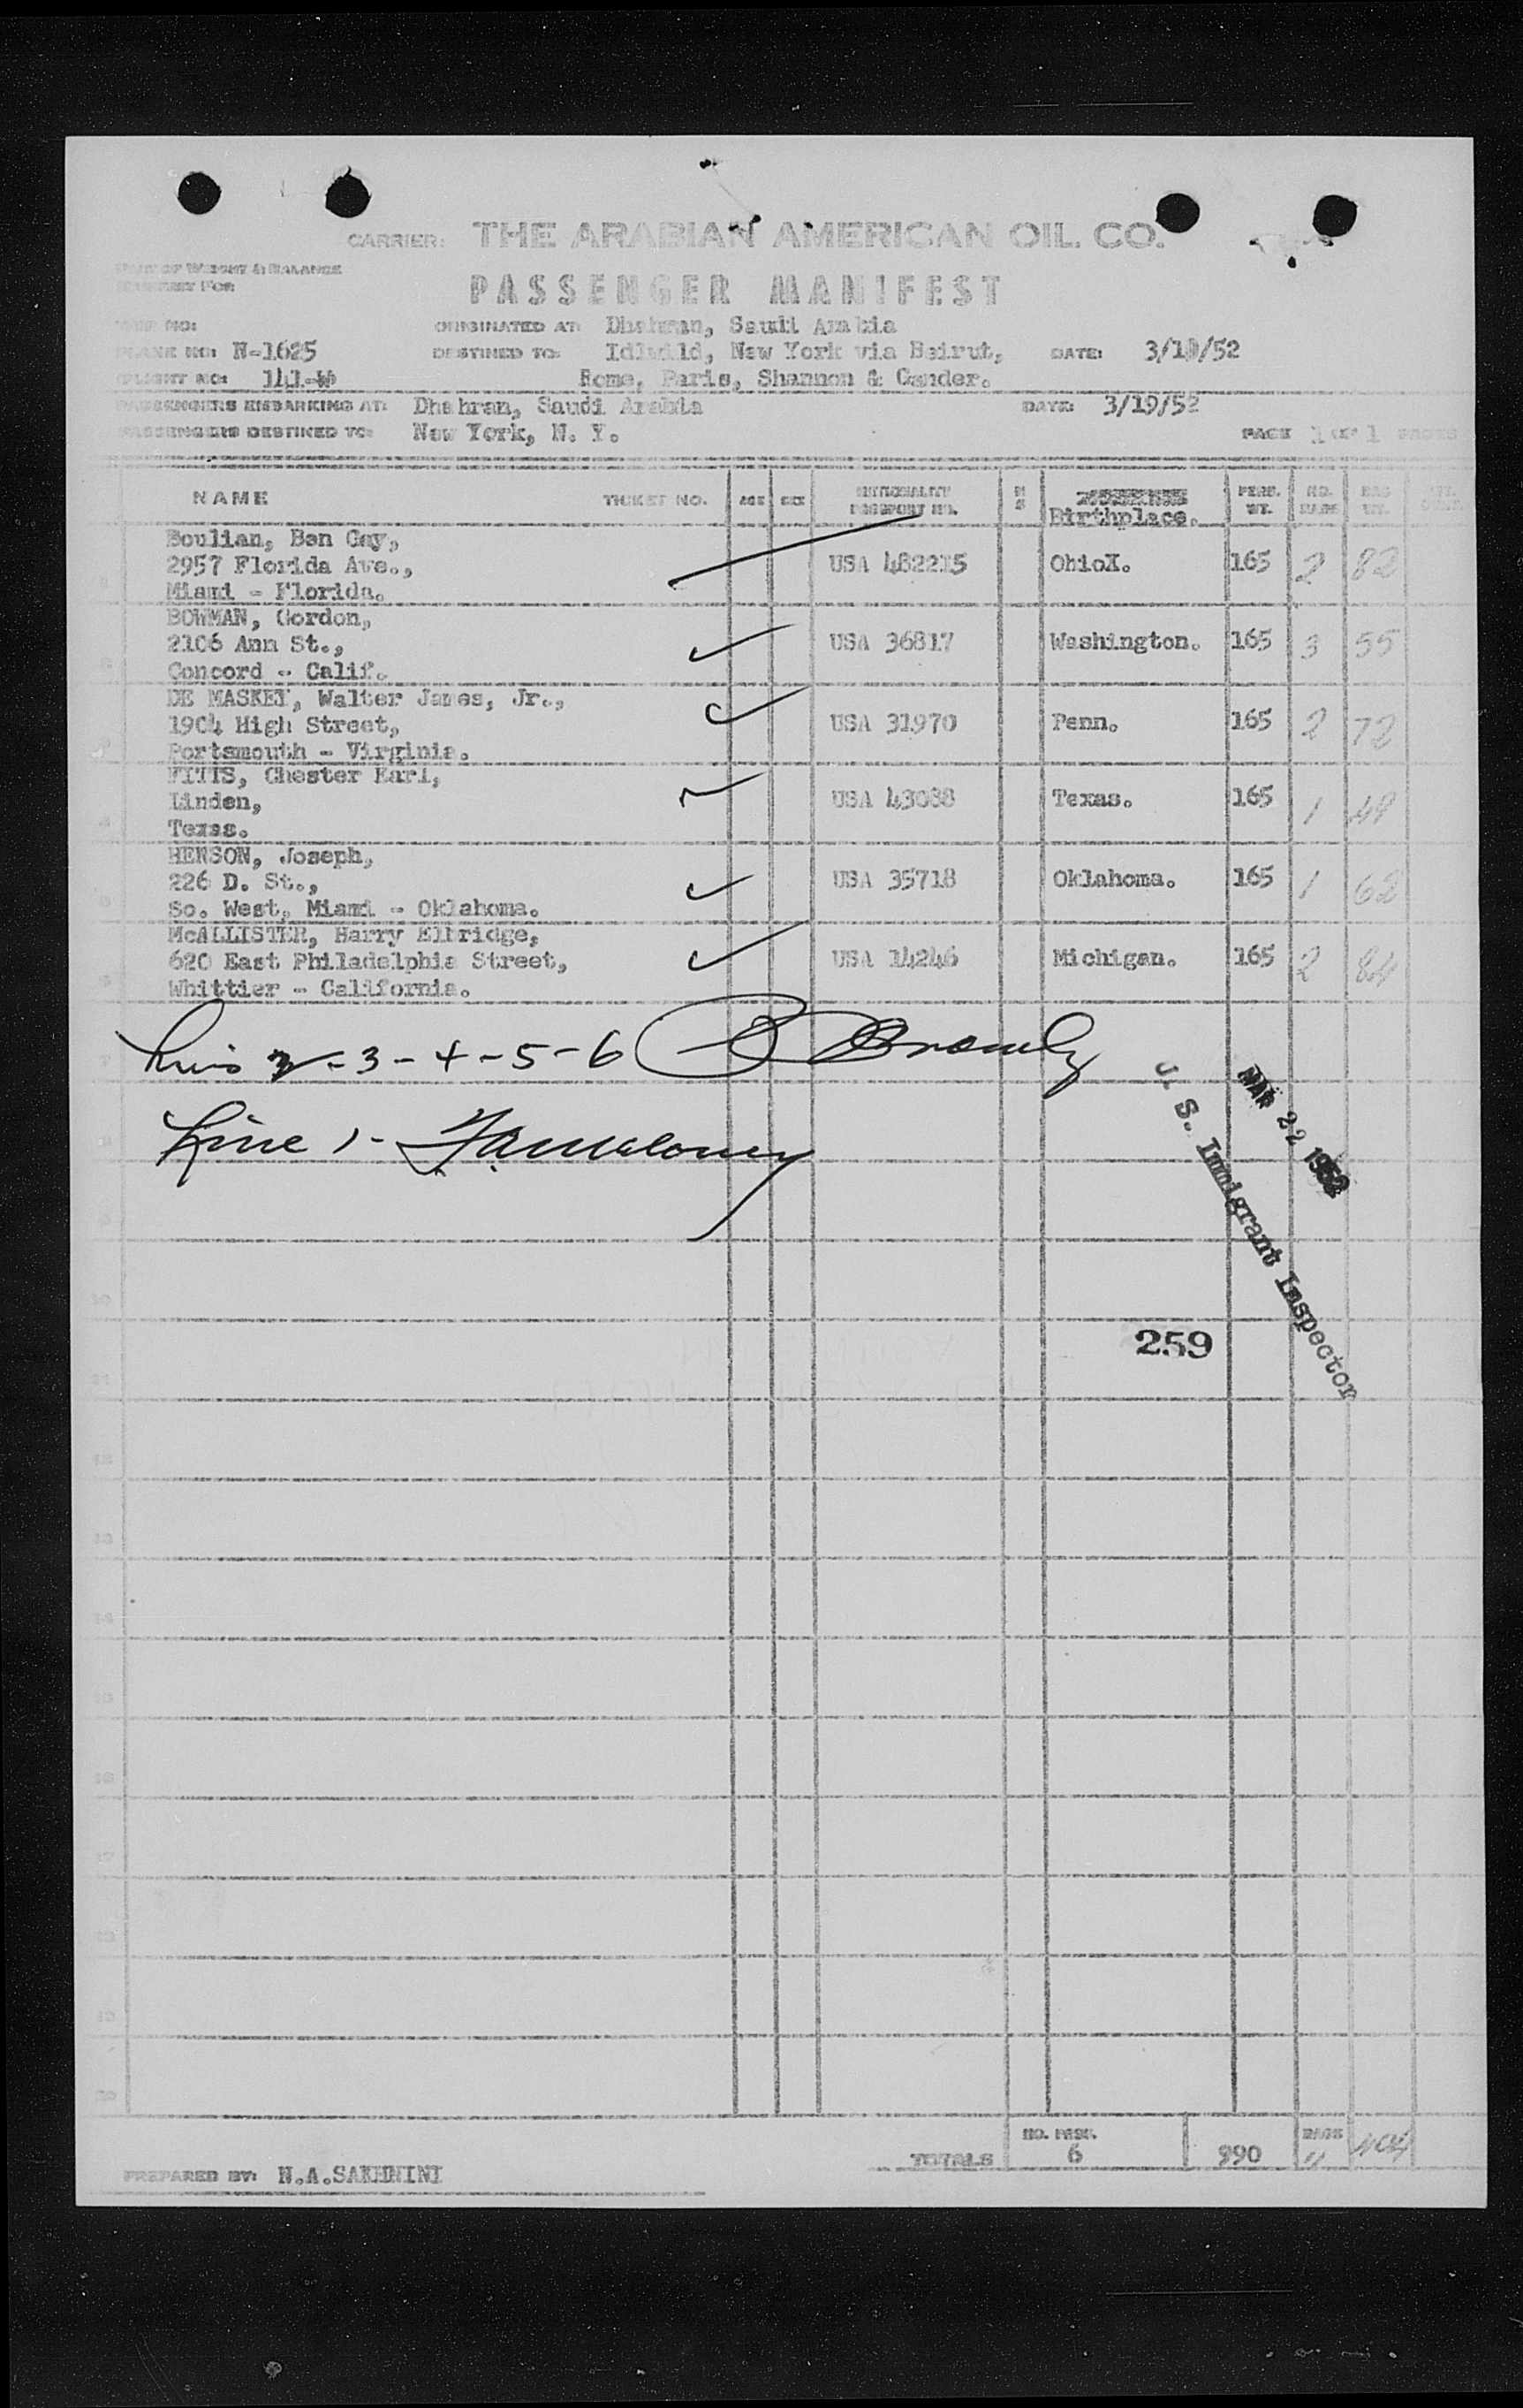 CARRIER: THE ARABIAN AMERICAN OIL CO.
PASSENGER MANIFEST
ORIGINATED AT: Dhahran, Saudi Arabia
PLANE NO: N-1625 DESTINED TO: Idlwild, New York via Beirut, DATE: 3/19/52
FLIGHT NO: 141-W Rome, Paris, Shannon & Gander.
PASSENGERS EMBARKING AT: Dhahran, Saudi Arabia DATE: 3/19/52
PASSENGERS DESTINED TO: New York, N. Y. PAGE 1 OF 1 PAGES
NAME TICKET NO. AGE SEX NATIONALITY PASSPORT NO. Birthplace. PERS. WT. NO. BAGS BAG WT.
Boulian, Ben Gay,
2957 Florida Ave., USA 482215 OhioX. 165 2 82
Miami - Florida.
BOWMAN, Gordon,
2106 Ann St., USA 36817 Washington. 165 3 55
Concord - Calif.
DE MASKEY, Walter James, Jr.,
1904 High Street, USA 31970 Penn. 165 2 72
Portsmouth - Virginia.
FITTS, Chester Earl,
Linden, USA 43088 Texas. 165 1 49
Texas.
HENSON, Joseph,
226 D. St., USA 35718 Oklahoma. 165 1 62
So. West, Miami - Oklahoma.
McALLISTER, Harry Elbridge,
620 East Philadelphia Street, USA 14246 Michigan. 165 2 84
Whittier - California.
2-3-4-5-6
Line 1-
MAR 22 1952
U. S. Immigrant Inspector
259
TOTALS NO. PASS. 6 990 BAGS 11 404
PREPARED BY: N.A.SAKHNINI